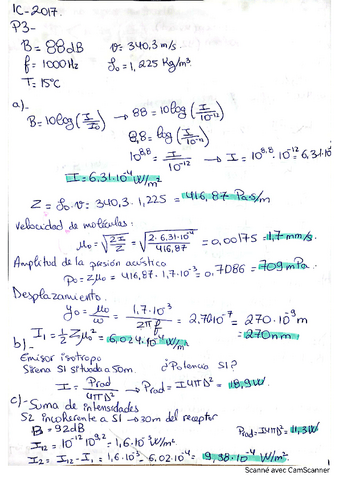 IC-2017.
P3-
B = 88dB   v = 340,3 m/s.
f = 1000Hz   ρ₀ = 1,225 Kg/m³
T = 15°C
a)-
B = 10log(I/I₀) → 88 = 10log(I/10⁻¹²)
8,8 = log(I/10⁻¹²)
10^8,8 = I/10⁻¹² → I = 10^8,8 · 10⁻¹² = 6,31·10⁻⁴
I = 6,31·10⁻⁴ W/m²
Z = ρ₀·v = 340,3 · 1,225 = 416,87 Pa·s/m
Velocidad de moléculas:
μ₀ = √(2I/Z) = √(2·6,31·10⁻⁴/416,87) = 0,00175 = 1,7 mm/s.
Amplitud de la presión acústica
p₀ = Zμ₀ = 416,87 · 1,7·10⁻³ = 0,7086 = 709 mPa.
Desplazamiento.
y₀ = μ₀/ω = 1,7·10⁻³/2πf = 2,70·10⁻⁷ = 270·10⁻⁹ m
= 270nm
I₁ = ½Zμ₀² = 6,024·10⁻⁴ W/m²
b)-
Emisor isotropo
Sirena S1 situado a 50m.   ¿Potencia S1?
I = Prad/4πD² → Prad = I4πD² = 18,9W
c)- Suma de intensidades
S2 incoherente a S1 → 30m del receptor
B = 92dB   Prad = I4πD² = 11,3W
I₁₂ = 10⁻¹² 10^9,2 = 1,6·10⁻³ W/m².
I₂ = I₁₂ - I₁ = 1,6·10⁻³ - 6,02·10⁻⁴ = 9,38·10⁻⁴ W/m²
Scanné avec CamScanner